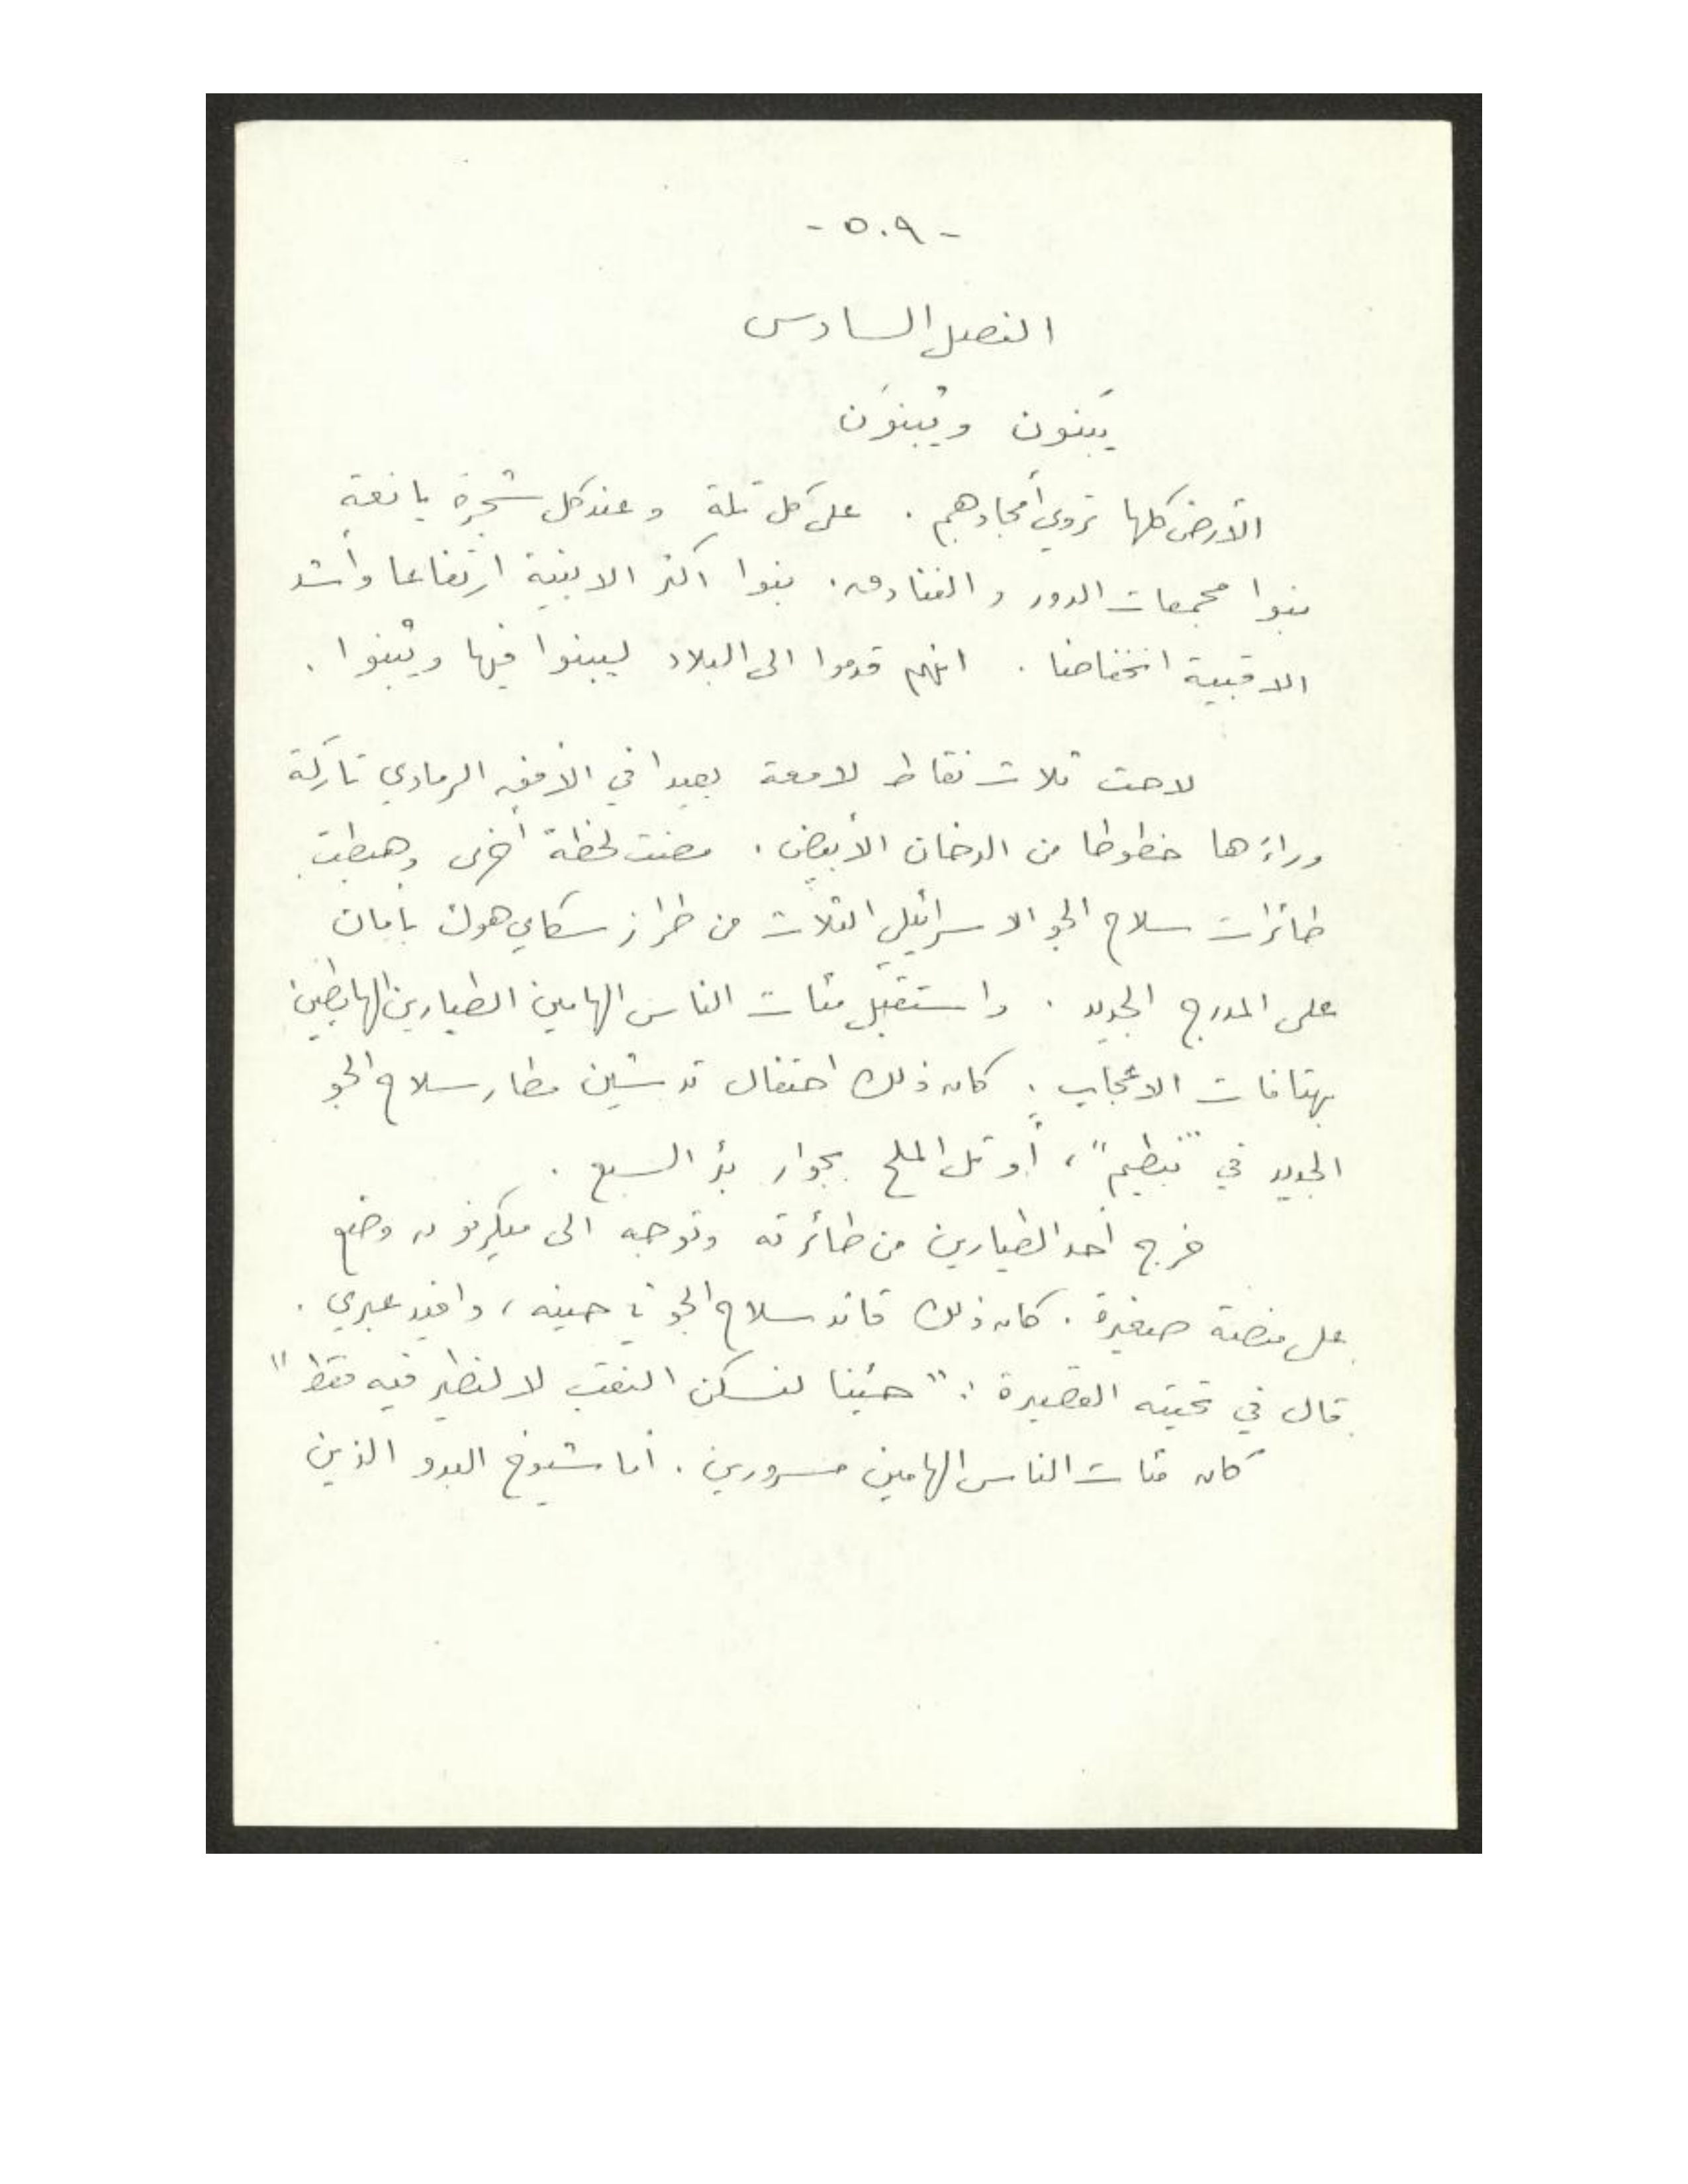 - ٥٠٩ -
الفصل السادس
يَبنون ويُبنوَن
الأرض كلها تروي أمجادهم . على كل تلة وعند كل شجرة يانعة
بنوا مجمعات الدور والفنادق . بنوا أكثر الابنية ارتفاعا وأشد
الاقبية انخفاضا . انهم قدموا الى البلاد ليبنوا فيها ويُبنوا .
لاحت ثلاث نقاط لامعة بعيدا في الأفق الرمادي تاركة
وراءها خطوطا من الدخان الأبيض . مضت لحظة أخرى وهبطت
طائرات سلاح الجو الاسرائيلي الثلاث من طراز سكاي هوك بأمان
على المدرج الجديد . واستقبل مئات الناس الهامين الطيارين الهابطين
بهتافات الاعجاب . كان ذلك احتفال تدشين مطار سلاح الجو
الجديد في "نبطيم" ، أو تل الملح بجوار بئر السبع .
خرج أحد الطيارين من طائرته وتوجه الى ميكرفون وضع
على منصة صغيرة . كان ذلك قائد سلاح الجو في حينه ، دافيد عبري .
قال في تحيته القصيرة : "جئنا لنسكن النقب لا لنطير فيه فقط"
كان مئات الناس الهامين مسرورين . أما شيوخ البدو الذين